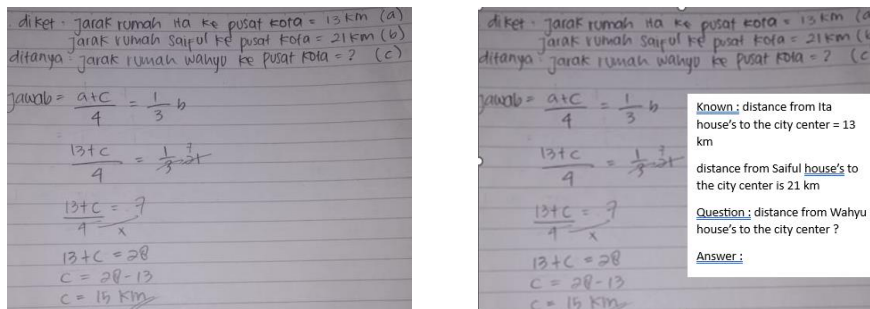 diket : jarak rumah Ita ke pusat kota = 13 km (a)
jarak rumah Saiful ke pusat kota = 21 km (b)
ditanya : jarak rumah wahyu ke pusat kota = ? (c)
jawab = a+c/4 = 1/3 b
13+c/4 = 1/3 21 7
13+c/4 = 7
x
13+c = 28
c = 28-13
c = 15 km
diket : jarak rumah Ita ke pusat kota = 13 km (a
jarak rumah Saiful ke pusat kota = 21 km (b
ditanya : jarak rumah wahyu ke pusat kota = ? (c
jawab = a+c/4 = 1/3 b
13+c/4 = 1/3 21 7
13+c/4 = 7
x
13+c = 28
c = 28-13
c = 15 km
Known : distance from Ita
house's to the city center = 13
km
distance from Saiful house's to
the city center is 21 km
Question : distance from Wahyu
house's to the city center ?
Answer :